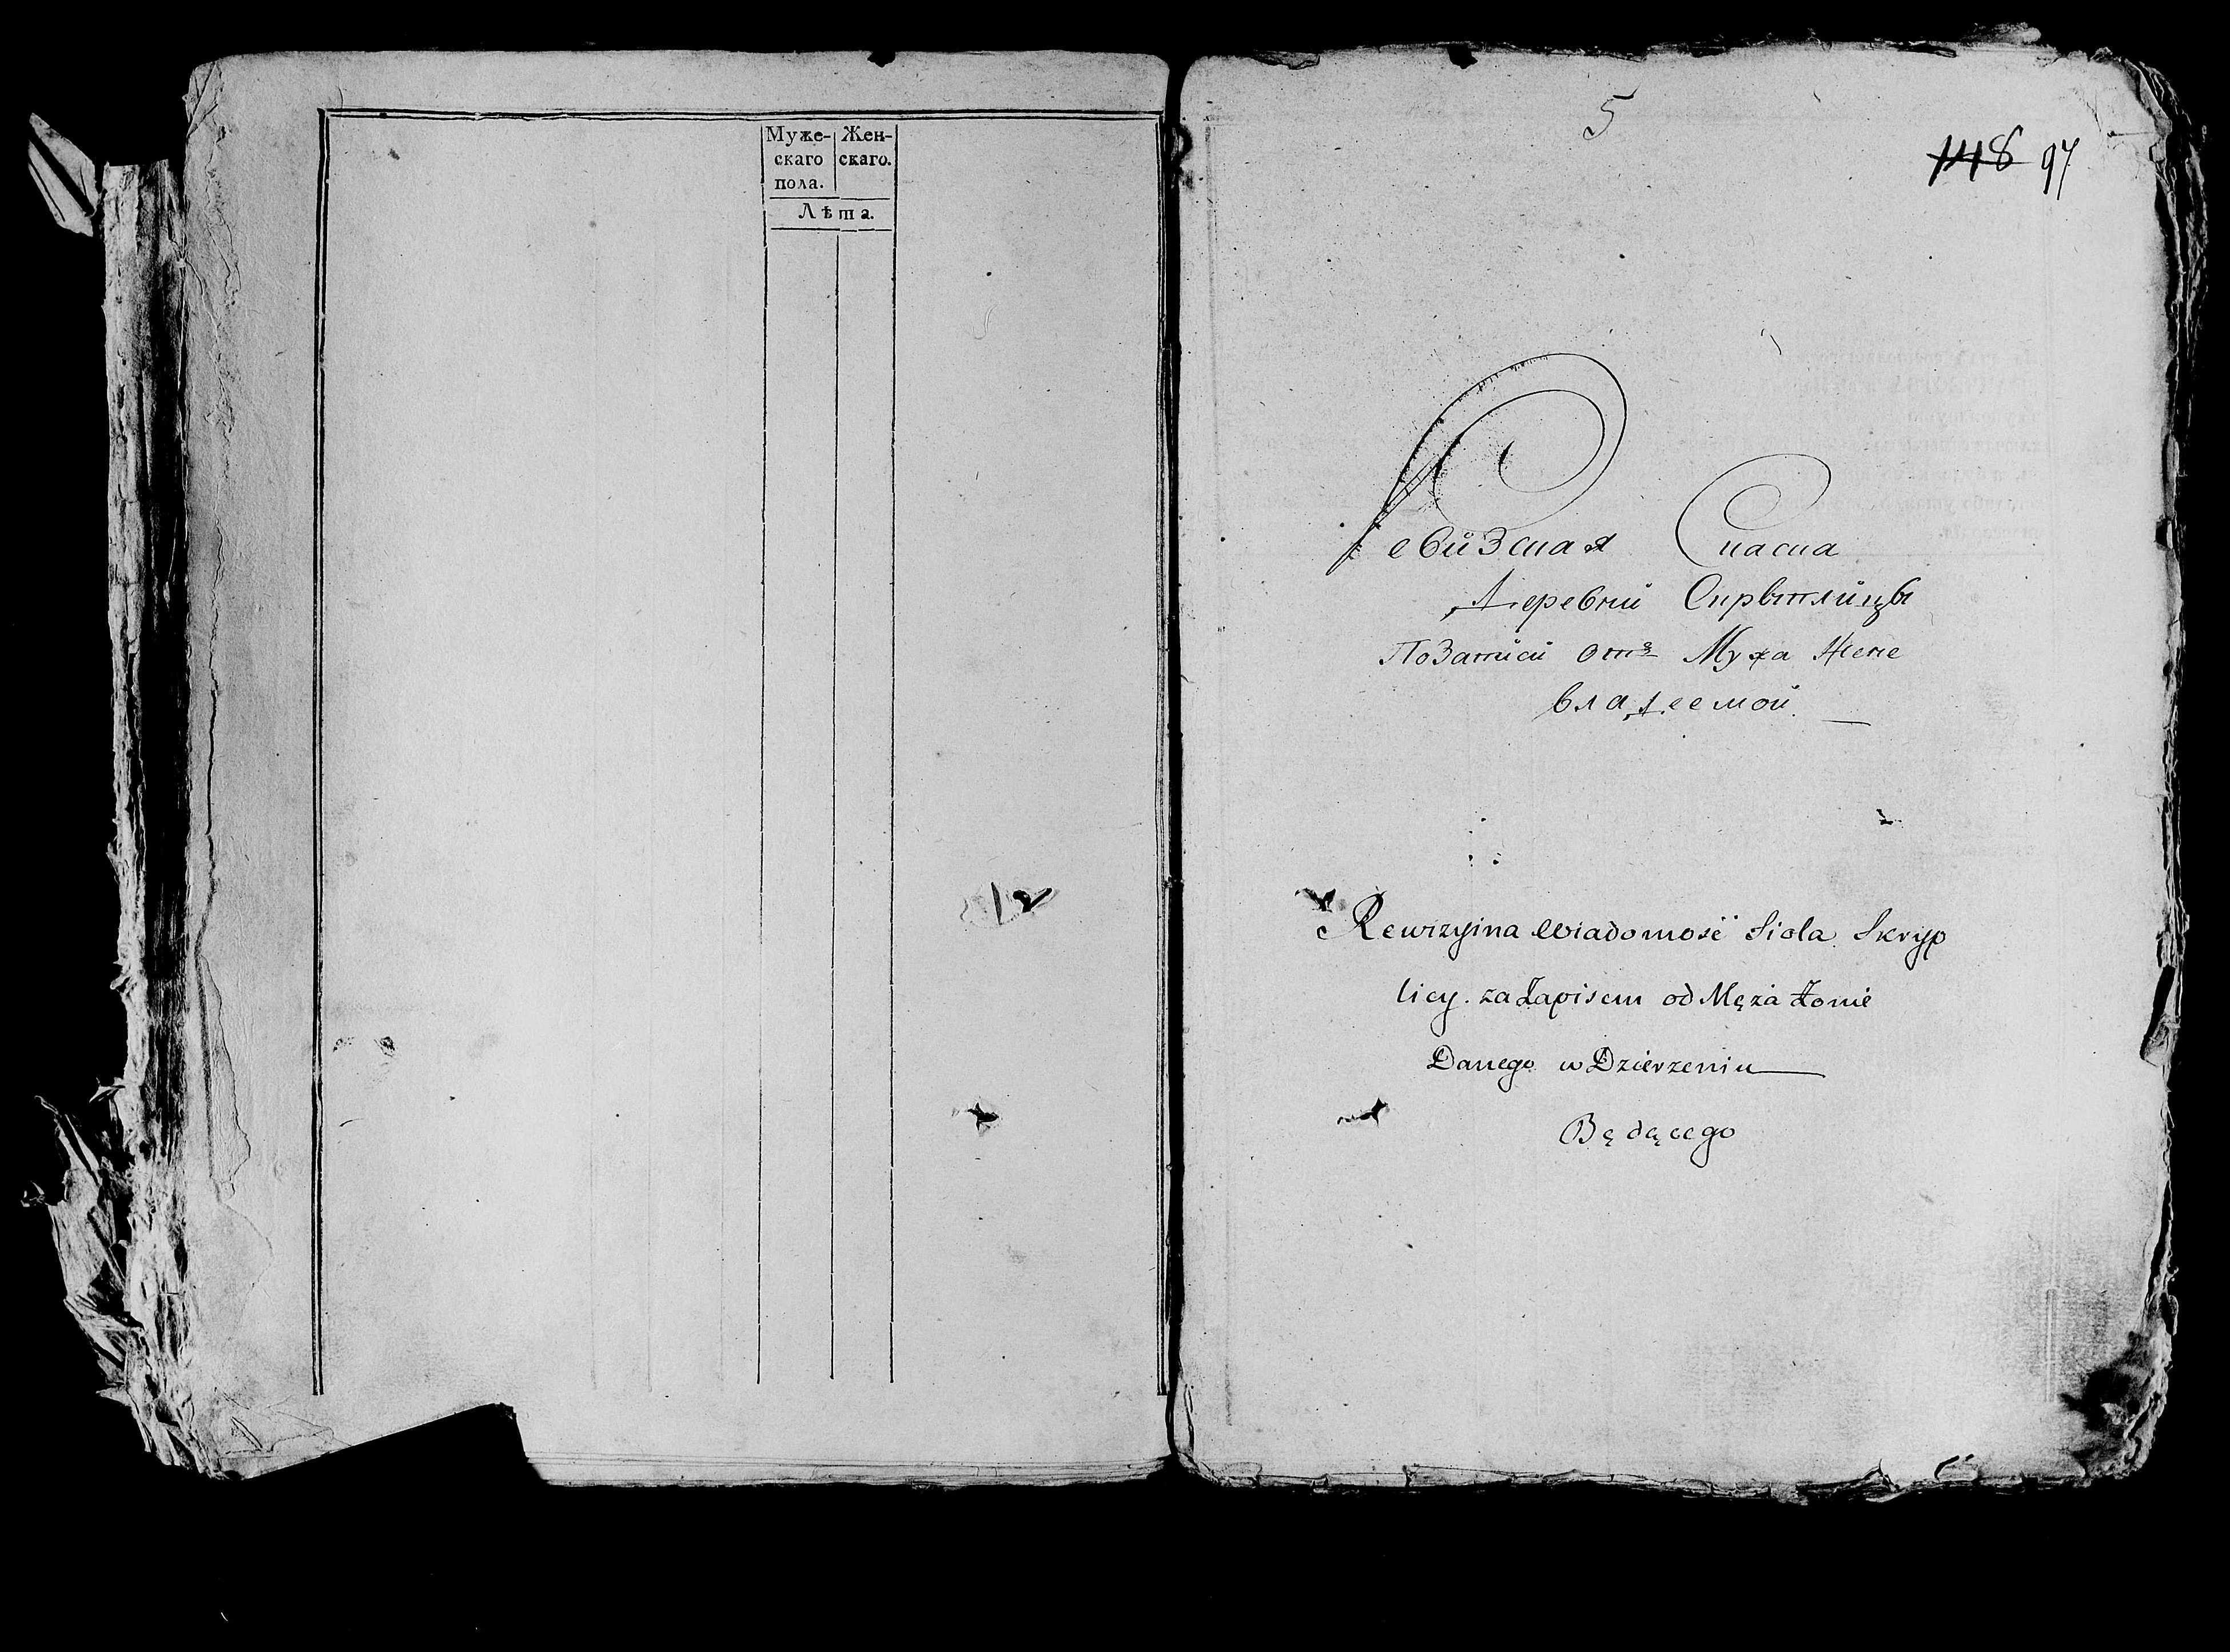 Муже- Жен-
скаго скаго.
пола.
Лѣта.
5
148 97
Ревизская Скаска
Деревни Скрыплицы
По Записи отъ Мужа Жене
владеемой.
Rewizyina Wiadomość Sioła Skryp
licy. za Zapisem od Męża Żonie
Danego w Dzierżeniu
Będącego